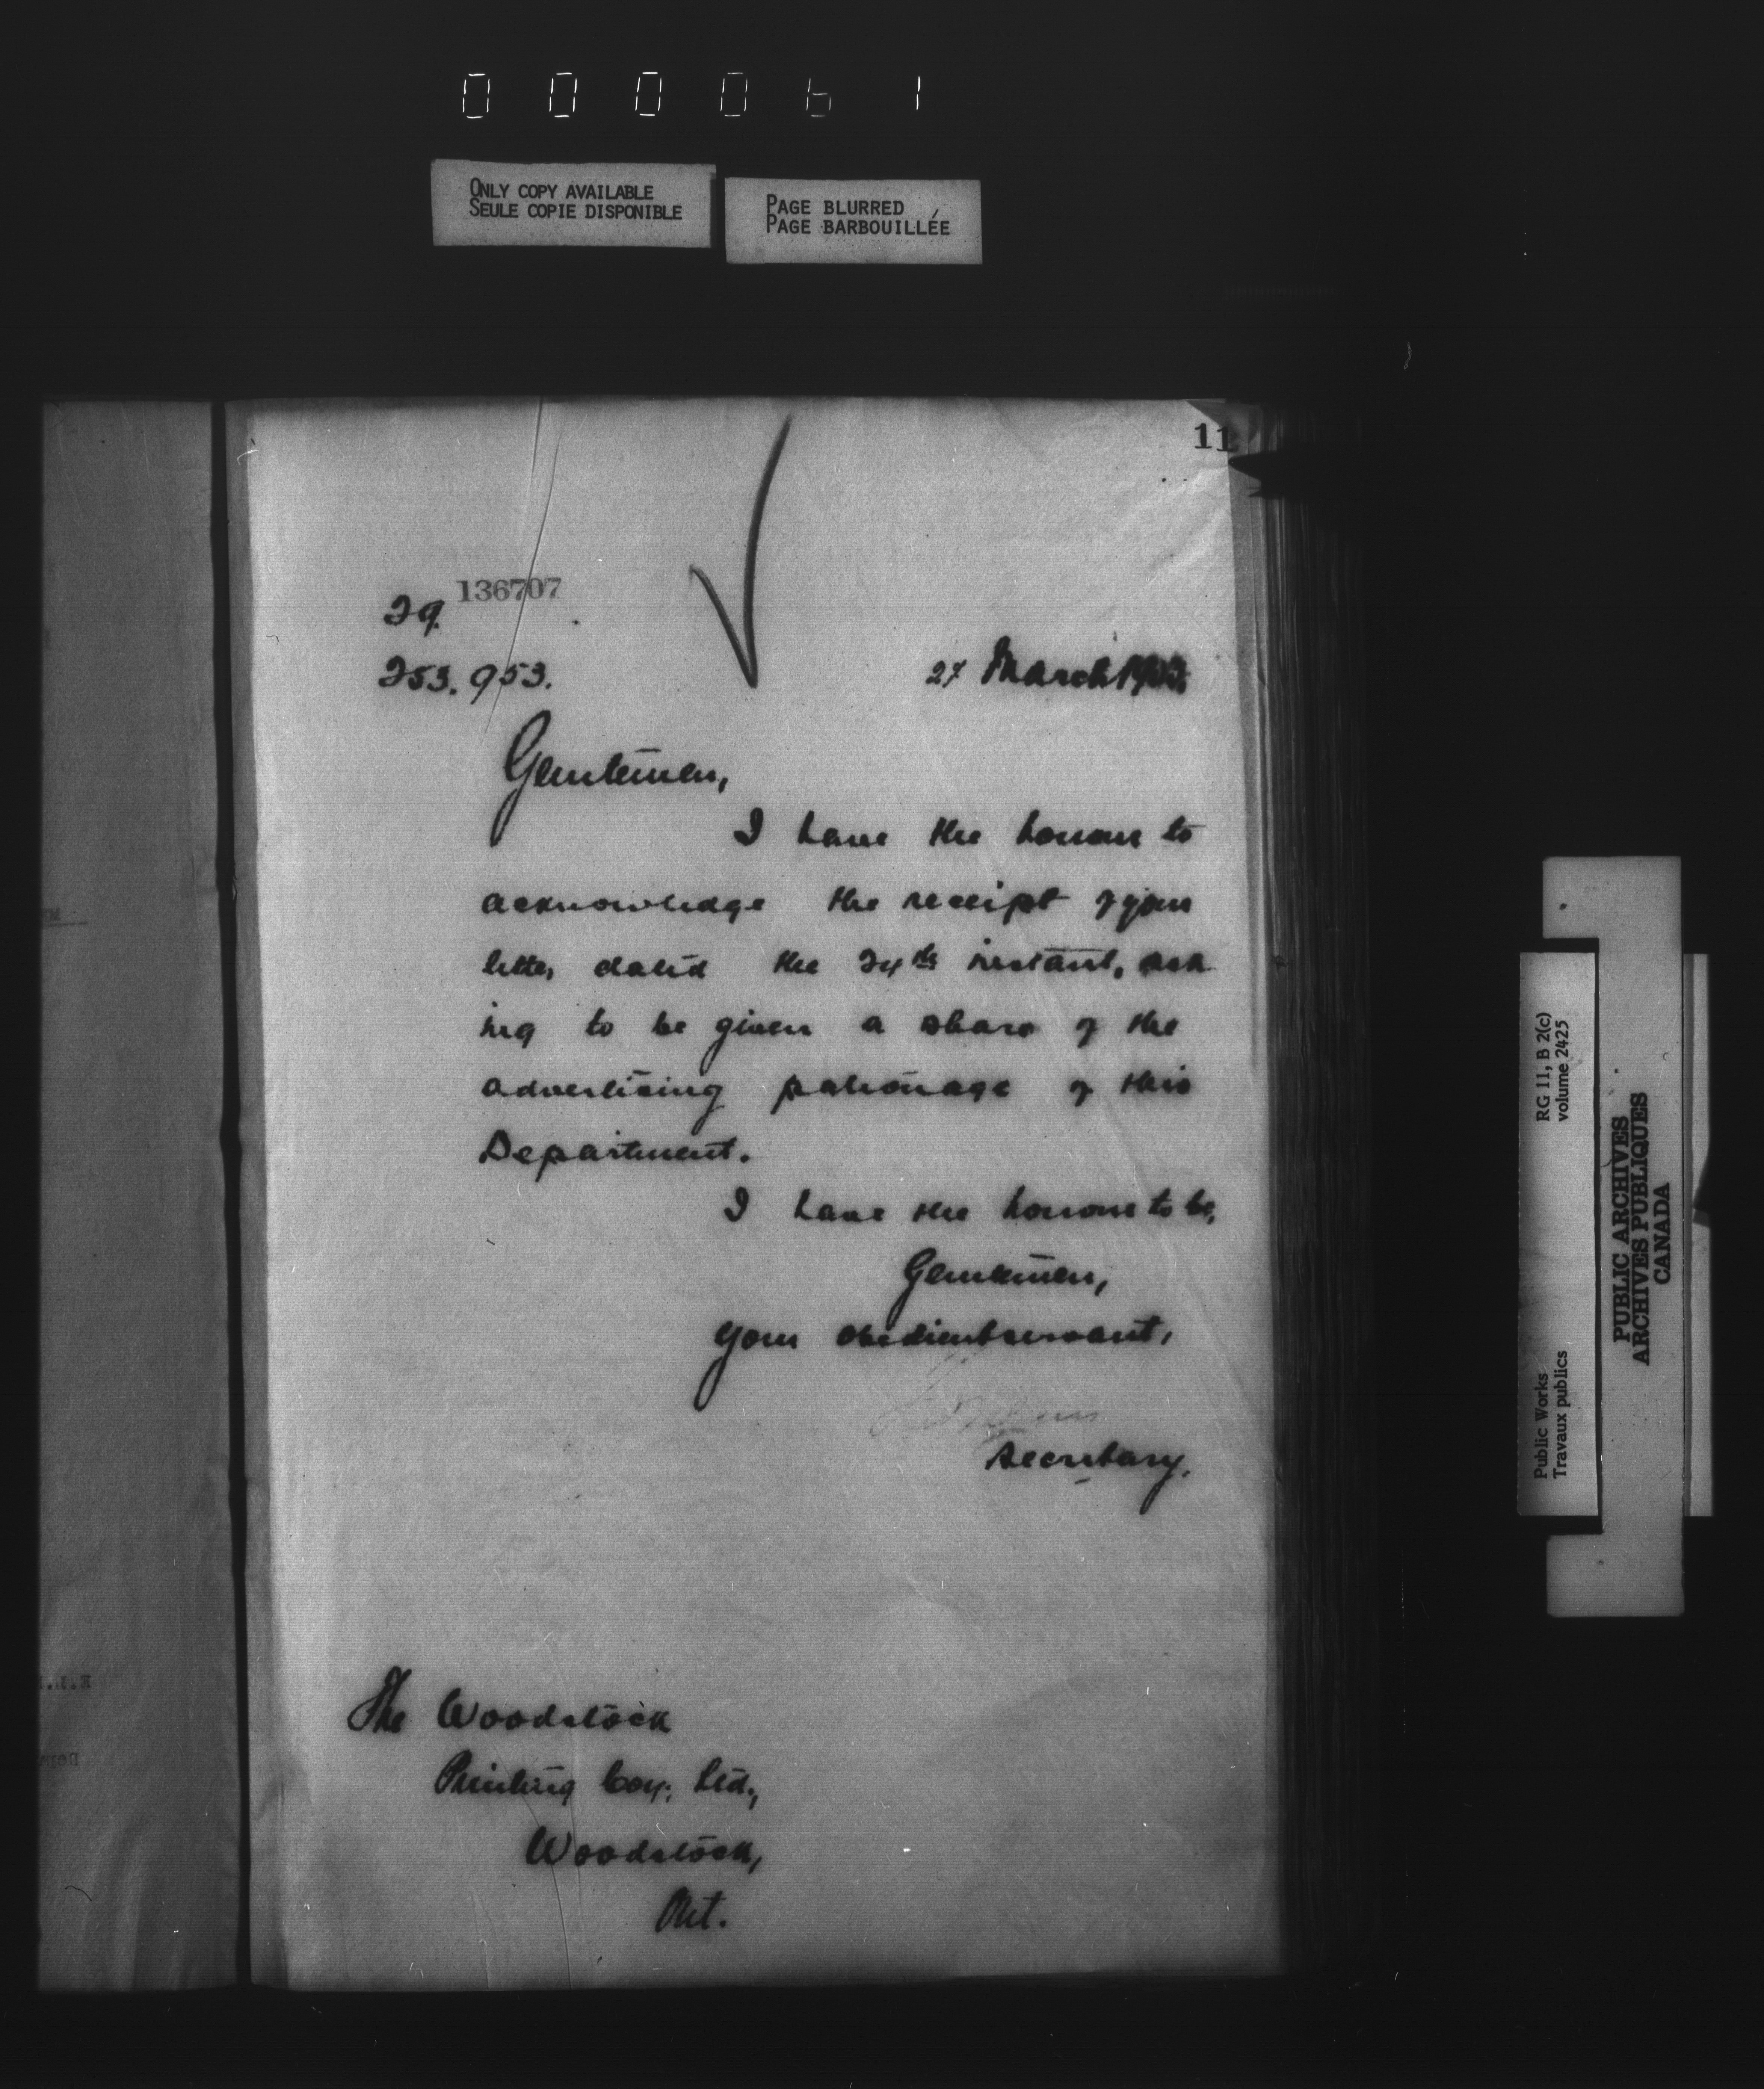 000061
ONLY COPY AVAILABLE
SEULE COPIE DISPONIBLE
PAGE BLURRED
PAGE BARBOUILLÉE
11
136707
29.
253.953.
27 March
Gentlemen,
I have the honour to
acknowledge the receipt of your
letter dated the 24th instant, ask
ing to be given a share of the
advertising patronage of this
Department.
I have the honour to be,
Gentlemen,
Your obedient servant,
Secretary.
The Woodstock
Printing Coy; Ltd.,
Woodstock,
Ont.
RG 11, B 2(c)
volume 2425
Public Works
Travaux publics
PUBLIC ARCHIVES
ARCHIVES PUBLIQUES
CANADA